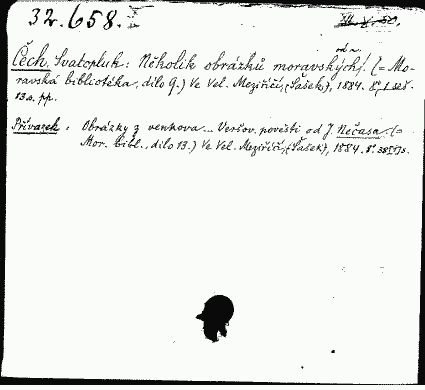 32.658.
od a.
Čech, Svatopluk: Několik obrázků moravských. (= Mo-
ravská bibliotéka, dílo 9.) Ve Vel. Meziříčí, (Šašek), 1884. 8°, 1 seš.
13 s. pp.
Přívazek: Obrázky z venkova... Veršov. pověsti od J. Nečasa. (=
Mor. bibl., dílo 13.) Ve Vel. Meziříčí, (Šašek), 1884. 8°.